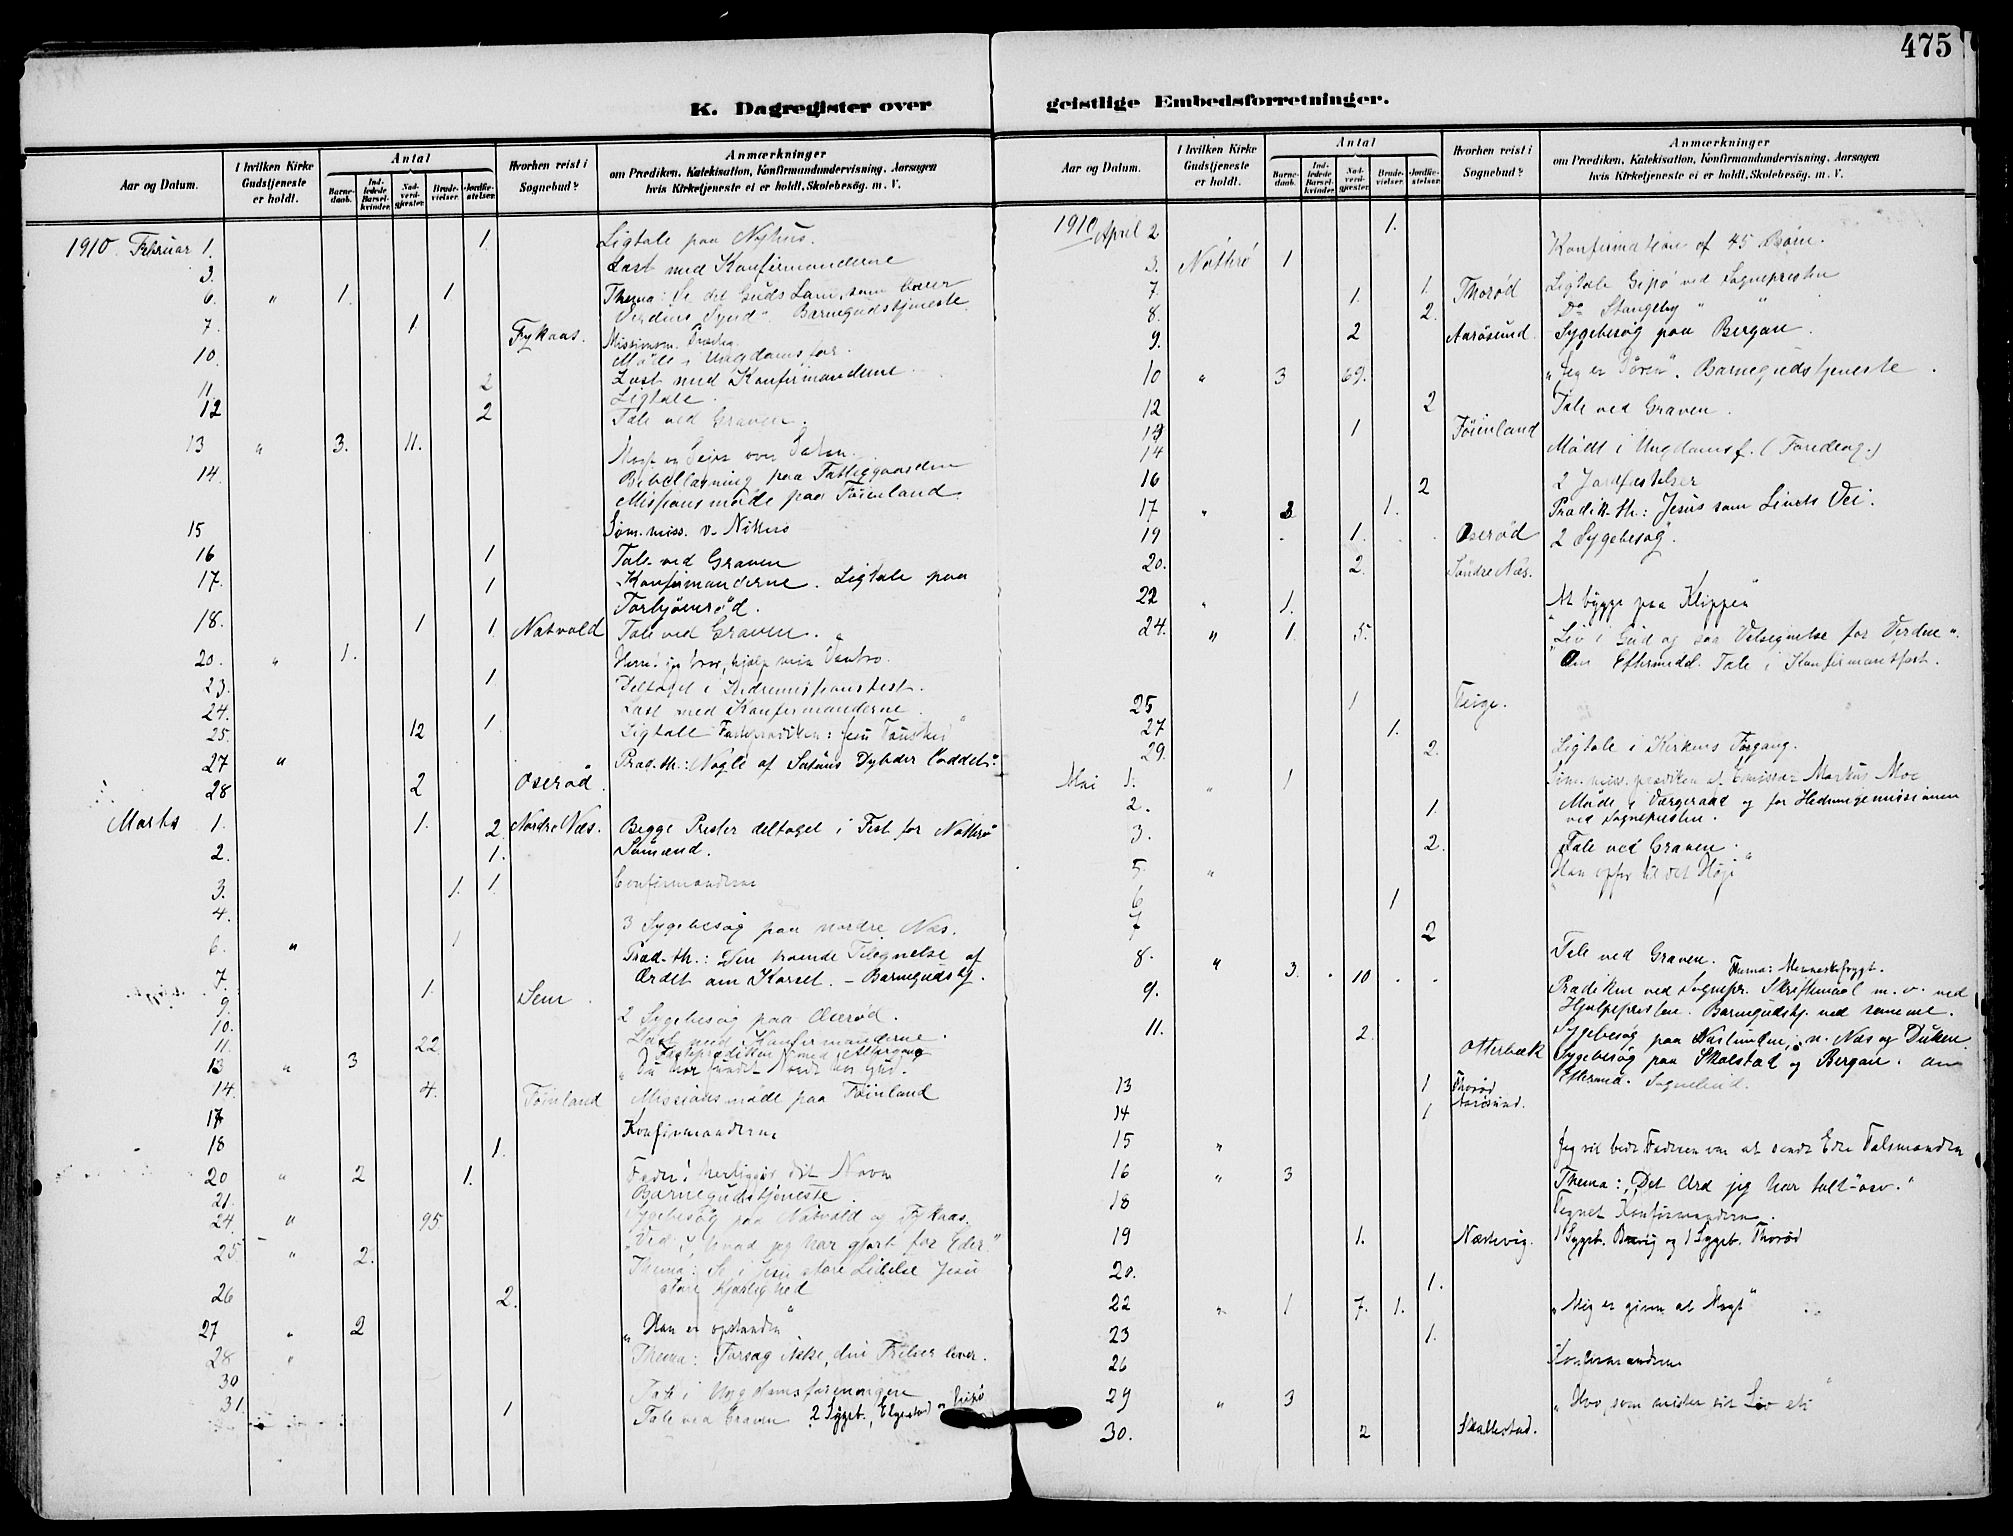 475
K. Dagregister over geistlige Embedsforretninger.
Aar og Datum.
I hvilken Kirke Gudstjeneste er holdt.
Antal
Barnedaab.
Indledede Barselkvinder.
Nadverdgjester.
Brudevielser.
Jordfæstelser.
Hvorhen reist i Sognebud?
Anmærkninger
om Prædiken, Katekisation, Konfirmandundervisning, Aarsagen
hvis Kirketjeneste ei er holdt, Skolebesøg. m. V.
1910 Februar 1. 1 Ligtale paa Nyhus.
3. Læst med Konfirmanderne
6. " 1. 1. Thema: Se det Guds Lam, som bærer
Verdens Synd". Barnegudstjeneste.
7. 1. Fykaas.
10. Møde i Ungdomsfor.
Læst med Konfirmanderne
11. 2 Ligtale.
12 2 Tale ved Graven.
13 " 3. 11.
14. Bibellæsning paa Fattiggaarden
Missionsmøde paa Föienland.
15
16 1 Tale ved Graven
17. 1 Konfirmanderne. Ligtale paa
Torbjönröd.
18. 1 1. Natvold Tale ved Graven.
20. " 1. Herre! jeg tror, hjælp min Vantro.
23. 1 Deltaget i Hedningemissionsfest.
24. Læst med Konfirmanderne
25. 12 1. Ligtale
27 " Præd. th.: Nogle af Satans Dybder
28 2 Oserød.
Marts 1. 1. 2 Nordre Næs. Begge Prester deltaget i Fest for Nøtterø
2. 1. Sömænd.
3. 1. 1. Confirmanderne
4. 3 Sygebesøg paa nordre Næs.
6. " 1 Præd. th.: Den troende Tilegnelse af
Ordet om Korset. - Barnegudstj.
7. 1. Sem
9. 2 Sygebesøg paa Oserød.
10. Læst med Konfirmanderne.
11. 22
13 " 3 "Du har fundet Naade hos Gud.
14. 4. Föinland Missionsmøde paa Föinland
17 Konfirmanderne
18 1.
20 " 2 1. Fader! herliggjør dit Navn
Barnegudstjeneste.
21. Sygebesøg paa Natvold og Fykaas.
24. " 95 "Ved I, hvad jeg har gjort for Eder."
25 " 2. Thema: Se i Jesu store Lidelse Jesu
store Kjærlighed
26 2.
27 " 2 "Han er opstanden"
28 " Thema: Forsag ikke, din Frelser lever.
30 Tale i Ungdomsforeningen
31. 1 Tale ved Graven 2 Sygeb., Elgestad
1910 April 2 1. Konfirmation af 45 Børn.
3. Nøtterø 1
7. 1. 1. Thorød Ligtale Gipø ved Sognepresten
8. 2. Do Stangeby "
9. 2 Aarøsund Sygebesøg paa Bergan.
10 " 3 69. "Jeg er Dören". Barnegudstjeneste.
12 2 Tale ved Graven.
13 1 Föienland
14 Mødt i Ungdomsf. (Foredrag.)
16 2 2 Jordfæstelser
17 " 1. Prædik. th.: Jesus som Livets Vei.
19 1. Oserød 2 Sygebesøg.
20. 2. Søndre Næs.
22 " 1. At bygge paa Klippen"
24. " 1. 5. "Liv i Gud og saa Velsignelse for Verden".
Om Eftermidd. Tale i Konfirmantfest.
25 1 Teige.
27 1.
29. 2. Ligtale i Kirkens Forgang.
Mai 1. " 1 Markus Moe
2. 1. Møde i Værgeraad og for Hedningemissionen
ved Sognepresten.
3. 2. Tale ved Graven.
5. " "Han opfor til det Høje"
6 1
7 2 Tale ved Graven.
8. " 3. 10 Thema: Menneskefrygt.
9. Prædiken ved Sognepr. Skriftemaal m.v. ved
Hjælpepresten. Barnegudstj. ved samme.
11. 2. Otterbæk Sygebesøg paa n. Næs og Duken
Sygebesøg paa Skalstad og Bergan. Om
Efterm. Sognebud.
13 1 Thorød
14 1 Aarøsund.
15 " Jeg vil bede Faderen om at sende Eder Talsmanden
16 " 3 Thema: "Det Ord jeg har talt" osv."
18 Tegnet Konfirmanderne.
19 1. Næstevig. 1 Sygeb. og 1 Sygeb. Thorød
20. 1.
22 " 1 7. 1. "Mig er given al Magt"
23 1.
26 Konfirmanderne
29 " 3 "Hvo, som mister sit Liv etc"
30. 2 Skallestad.